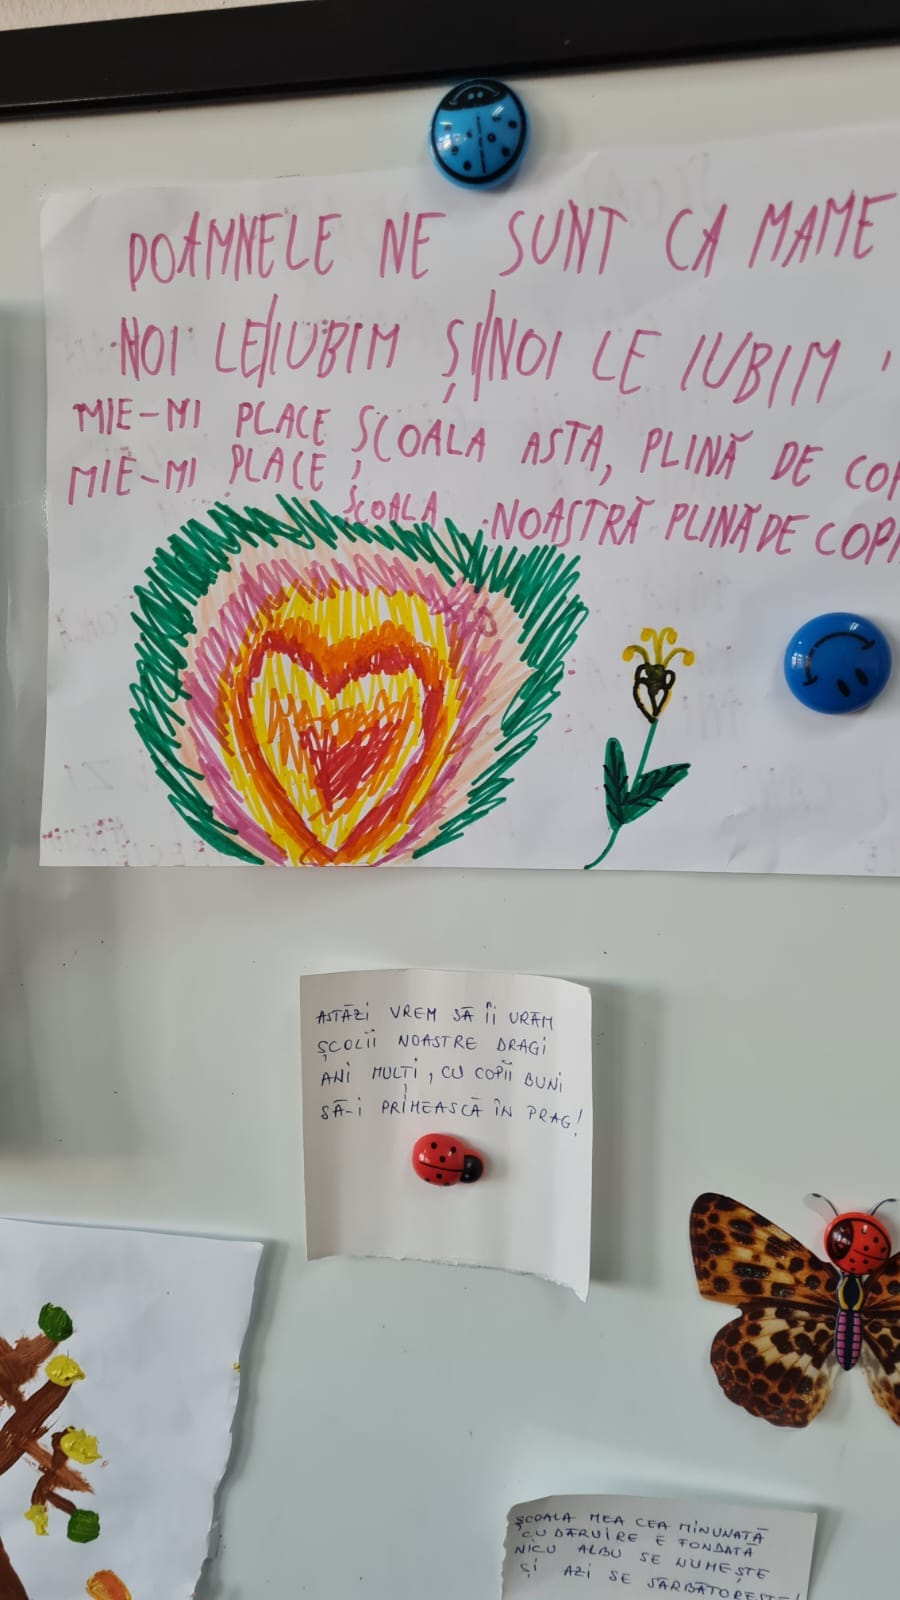 DOAMNELE NE SUNT CA MAME
NOI LE IUBIM ȘI NOI LE IUBIM
MIE-MI PLACE ȘCOALA ASTA, PLINĂ DE
MIE-MI PLACE ȘCOALA NOASTRĂ PLINĂ DE
ASTĂZI VREM SĂ ÎI URĂM
ȘCOLII NOASTRE DRAGI
ANI MULȚI, CU COPII BUNI
SĂ-I PRIMEASCĂ ÎN PRAG!
ȘCOALA MEA CEA MINUNATĂ
CU DĂRUIRE E FONDATĂ
NICU ALBU SE NUMEȘTE
ȘI AZI SE SĂRBĂTOREȘTE!